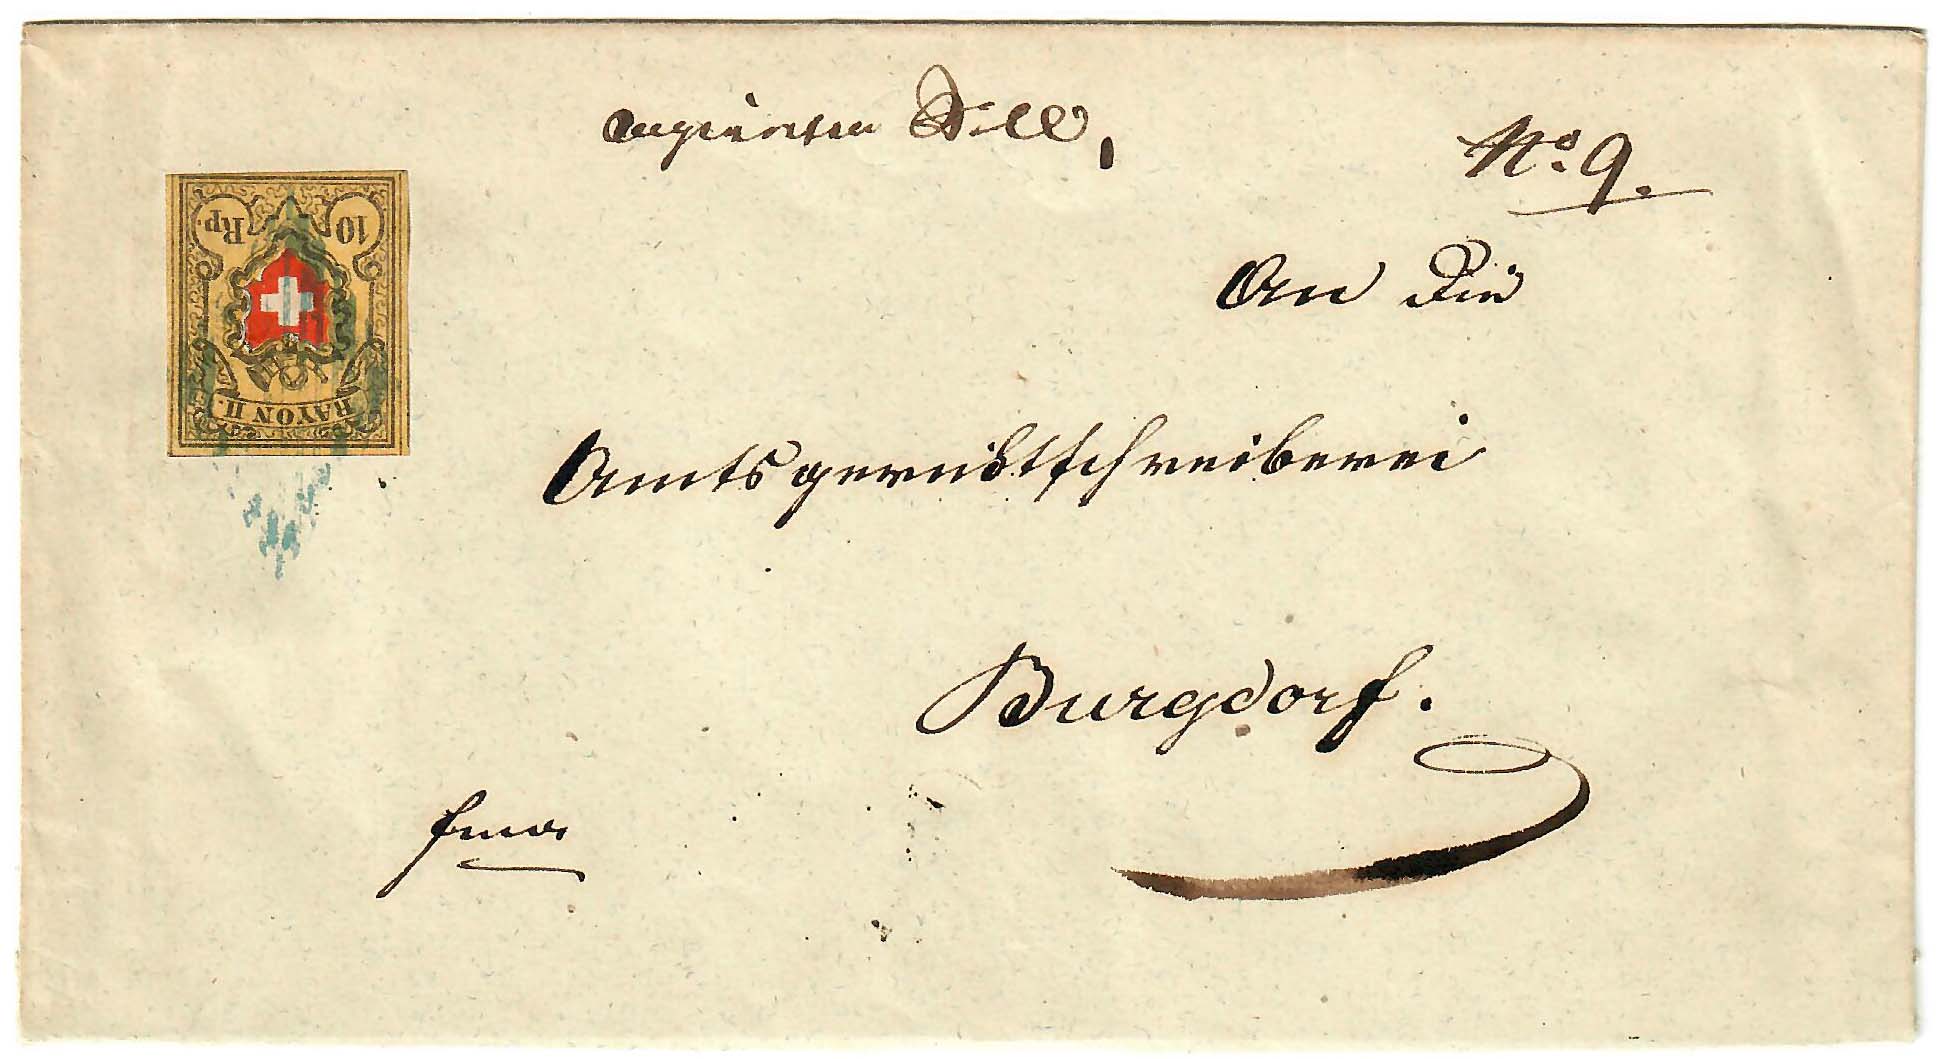 No. 9.
An die
Amtsgerichtschreiberei
Burgdorf.
franco
10 Rp.
RAYON II.